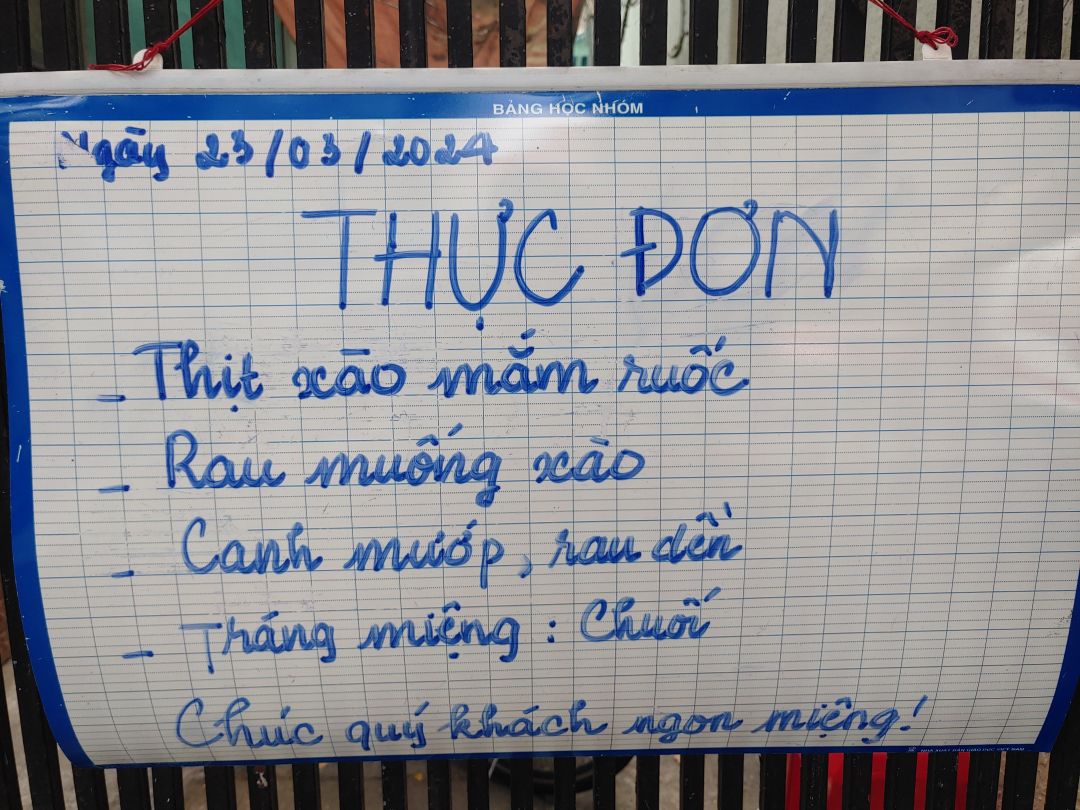 BẢNG HỌC NHÓM
Ngày 23/03/2024
THỰC ĐƠN
- Thịt xào mắm ruốc
- Rau muống xào
- Canh mướp, rau dền
- Tráng miệng : Chuối
Chúc quý khách ngon miệng!
NHÀ XUẤT BẢN GIÁO DỤC VIỆT NAM